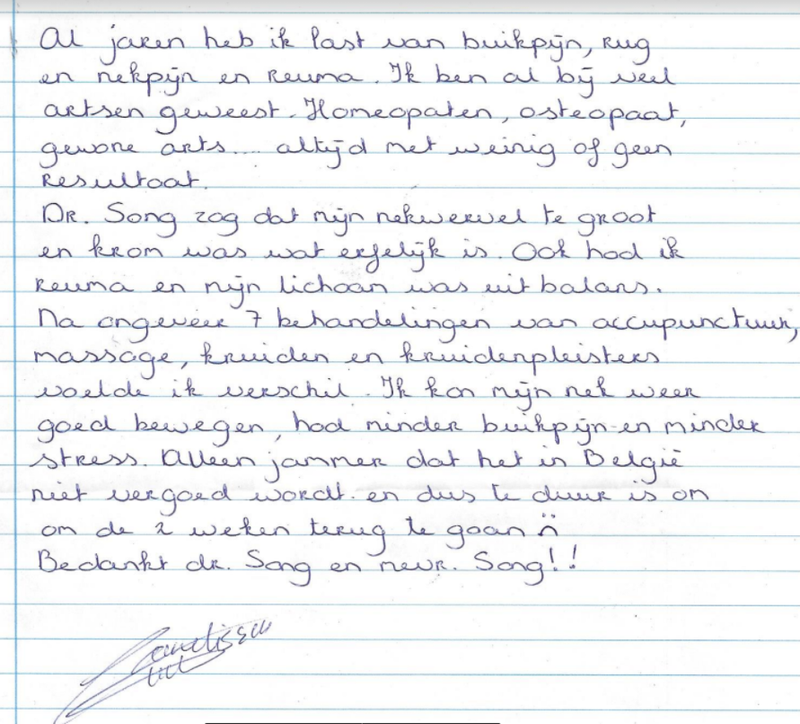 Al jaren heb ik last van buikpijn, rug
en nekpijn en Reuma. Ik ben al bij veel
artsen geweest. Homeopaten, osteopaat,
gewone arts.... altijd met weinig of geen
Resultaat.
DR. Song zag dat mijn nekwervel te groot
en krom was wat erfelijk is. Ook had ik
Reuma en mijn lichaan was uit balans.
Na ongeveer 7 behandelingen van accupunctuur,
massage, kruiden en kruidenpleisters
voelde ik verschil. Ik kon mijn nek weer
goed bewegen, had minder buikpijn en minder
stress. Alleen jammer dat het in België
niet vergoed wordt en dus te duur is om
om de 2 weken terug te gaan
Bedankt dr. Song en mevr. Song!!